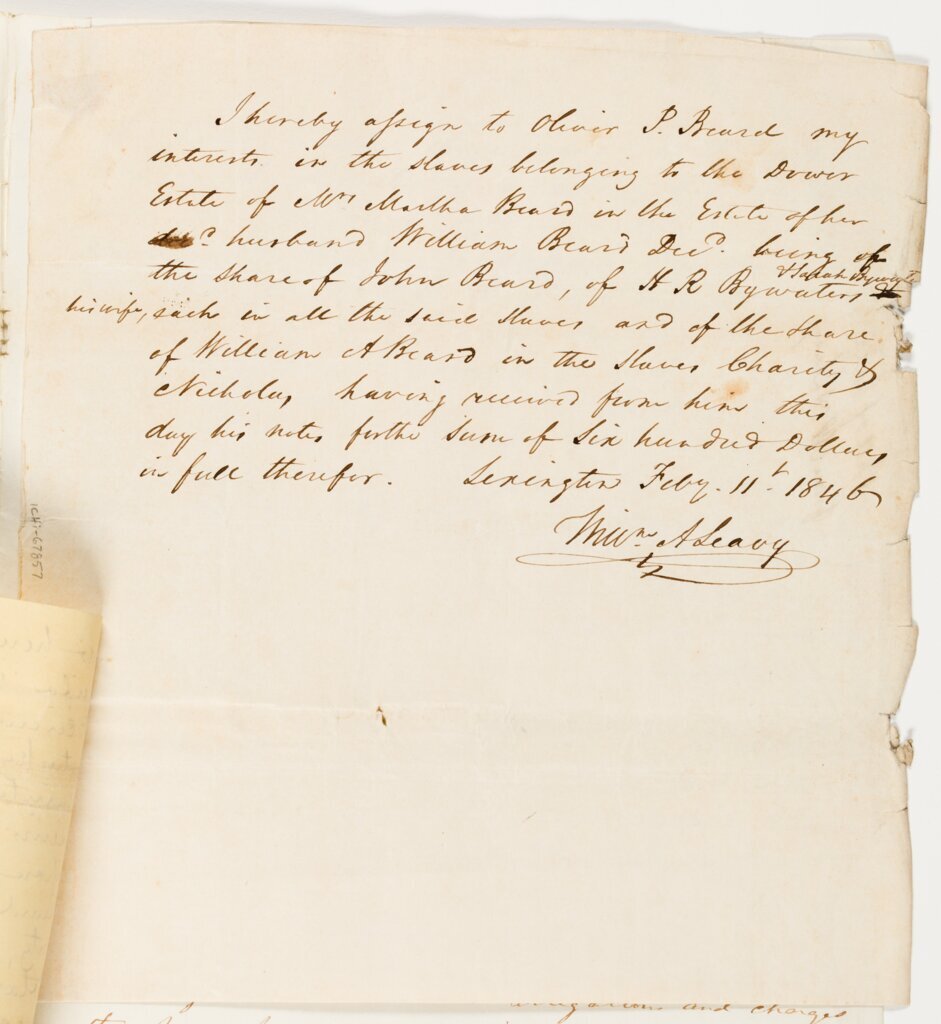 I hereby assign to Oliver P. Beard my
interests in the slaves belonging to the Dower
Estate of Mrs Martha Beard in the Estate of her
husband William Beard Decd. being of
the share of John Beard, of H R Bywaters & Sarah Bywaters
his wife, each in all the said slaves and of the share
of William A Beard in the slaves Charity &
Nicholas, having received from him this
day his notes for the sum of Six hundred Dollars
in full therefor. Lexington Feby. 11t. 1846
Wm. A Leavy
ICHi-67857
and charges